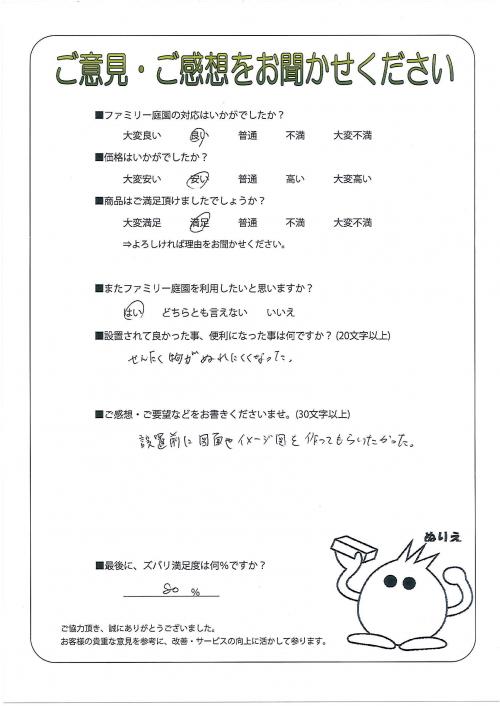 ご意見・ご感想をお聞かせください
■ファミリー庭園の対応はいかがでしたか？
大変良い 良い 普通 不満 大変不満
■価格はいかがでしたか？
大変安い 安い 普通 高い 大変高い
■商品はご満足頂けましたでしょうか？
大変満足 満足 普通 不満 大変不満
⇒よろしければ理由をお聞かせください。
■またファミリー庭園を利用したいと思いますか？
はい どちらとも言えない いいえ
■設置されて良かった事、便利になった事は何ですか？(20文字以上)
せんたく物がぬれにくくなった。
■ご感想・ご要望などをお書きくださいませ。(30文字以上)
設置前に図面やイメージ図を作ってもらいたかった。
ぬりえ
■最後に、ズバリ満足度は何％ですか？
80 %
ご協力頂き、誠にありがとうございました。
お客様の貴重な意見を参考に、改善・サービスの向上に活かして参ります。